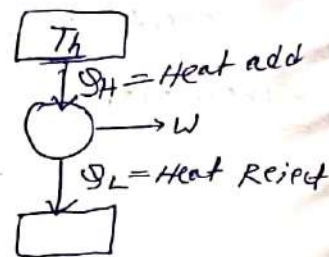 Th
QH = Heat add
W
QL = Heat Reject